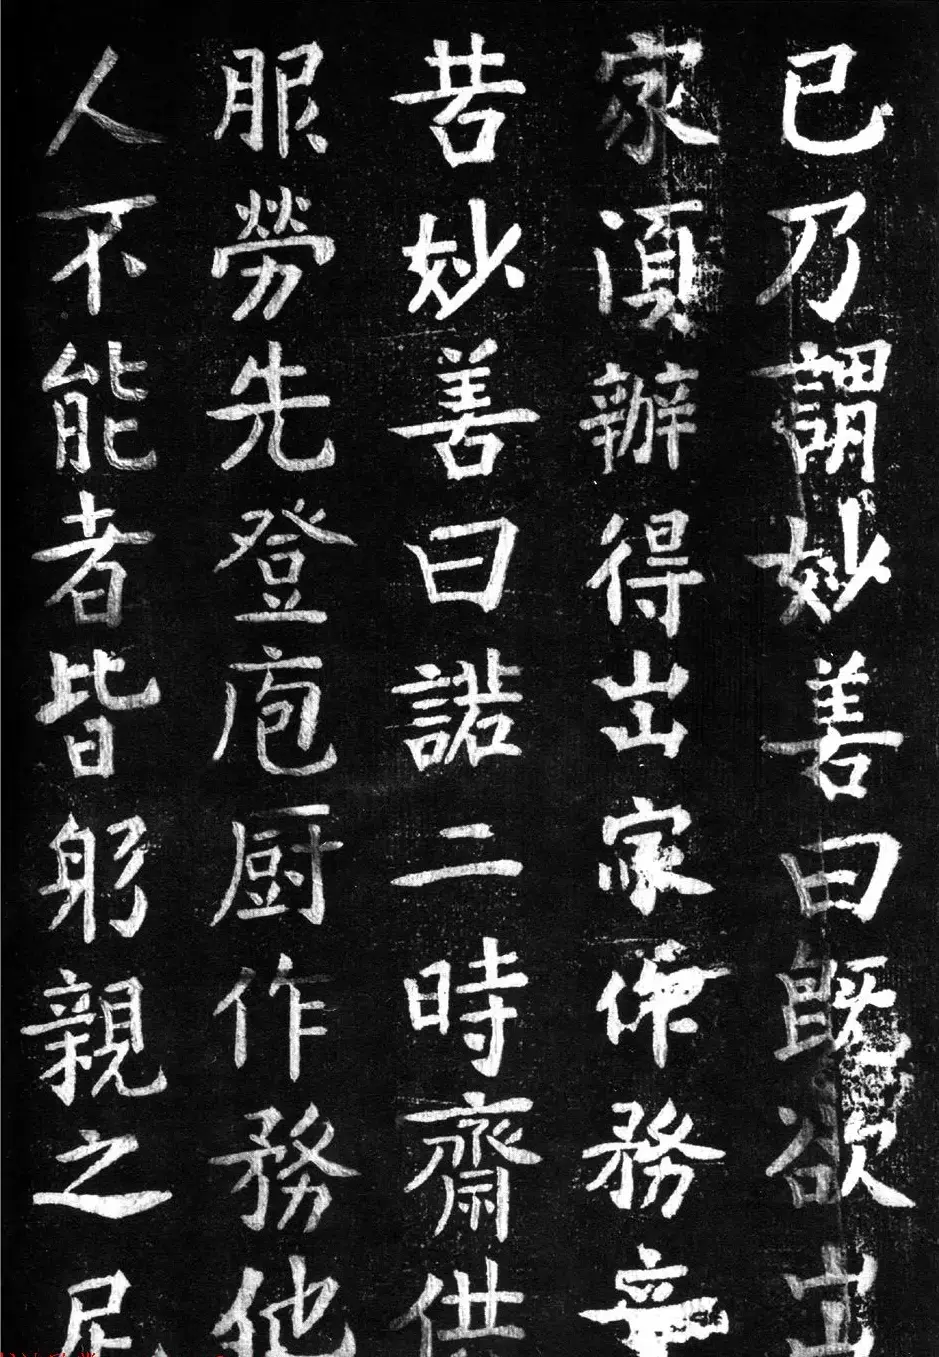 已乃謂妙善曰既欲出
家須辦得出家作務辛
苦妙善曰諾二時齋供
服勞先登庖厨作務他
人不能者皆躬親之尼